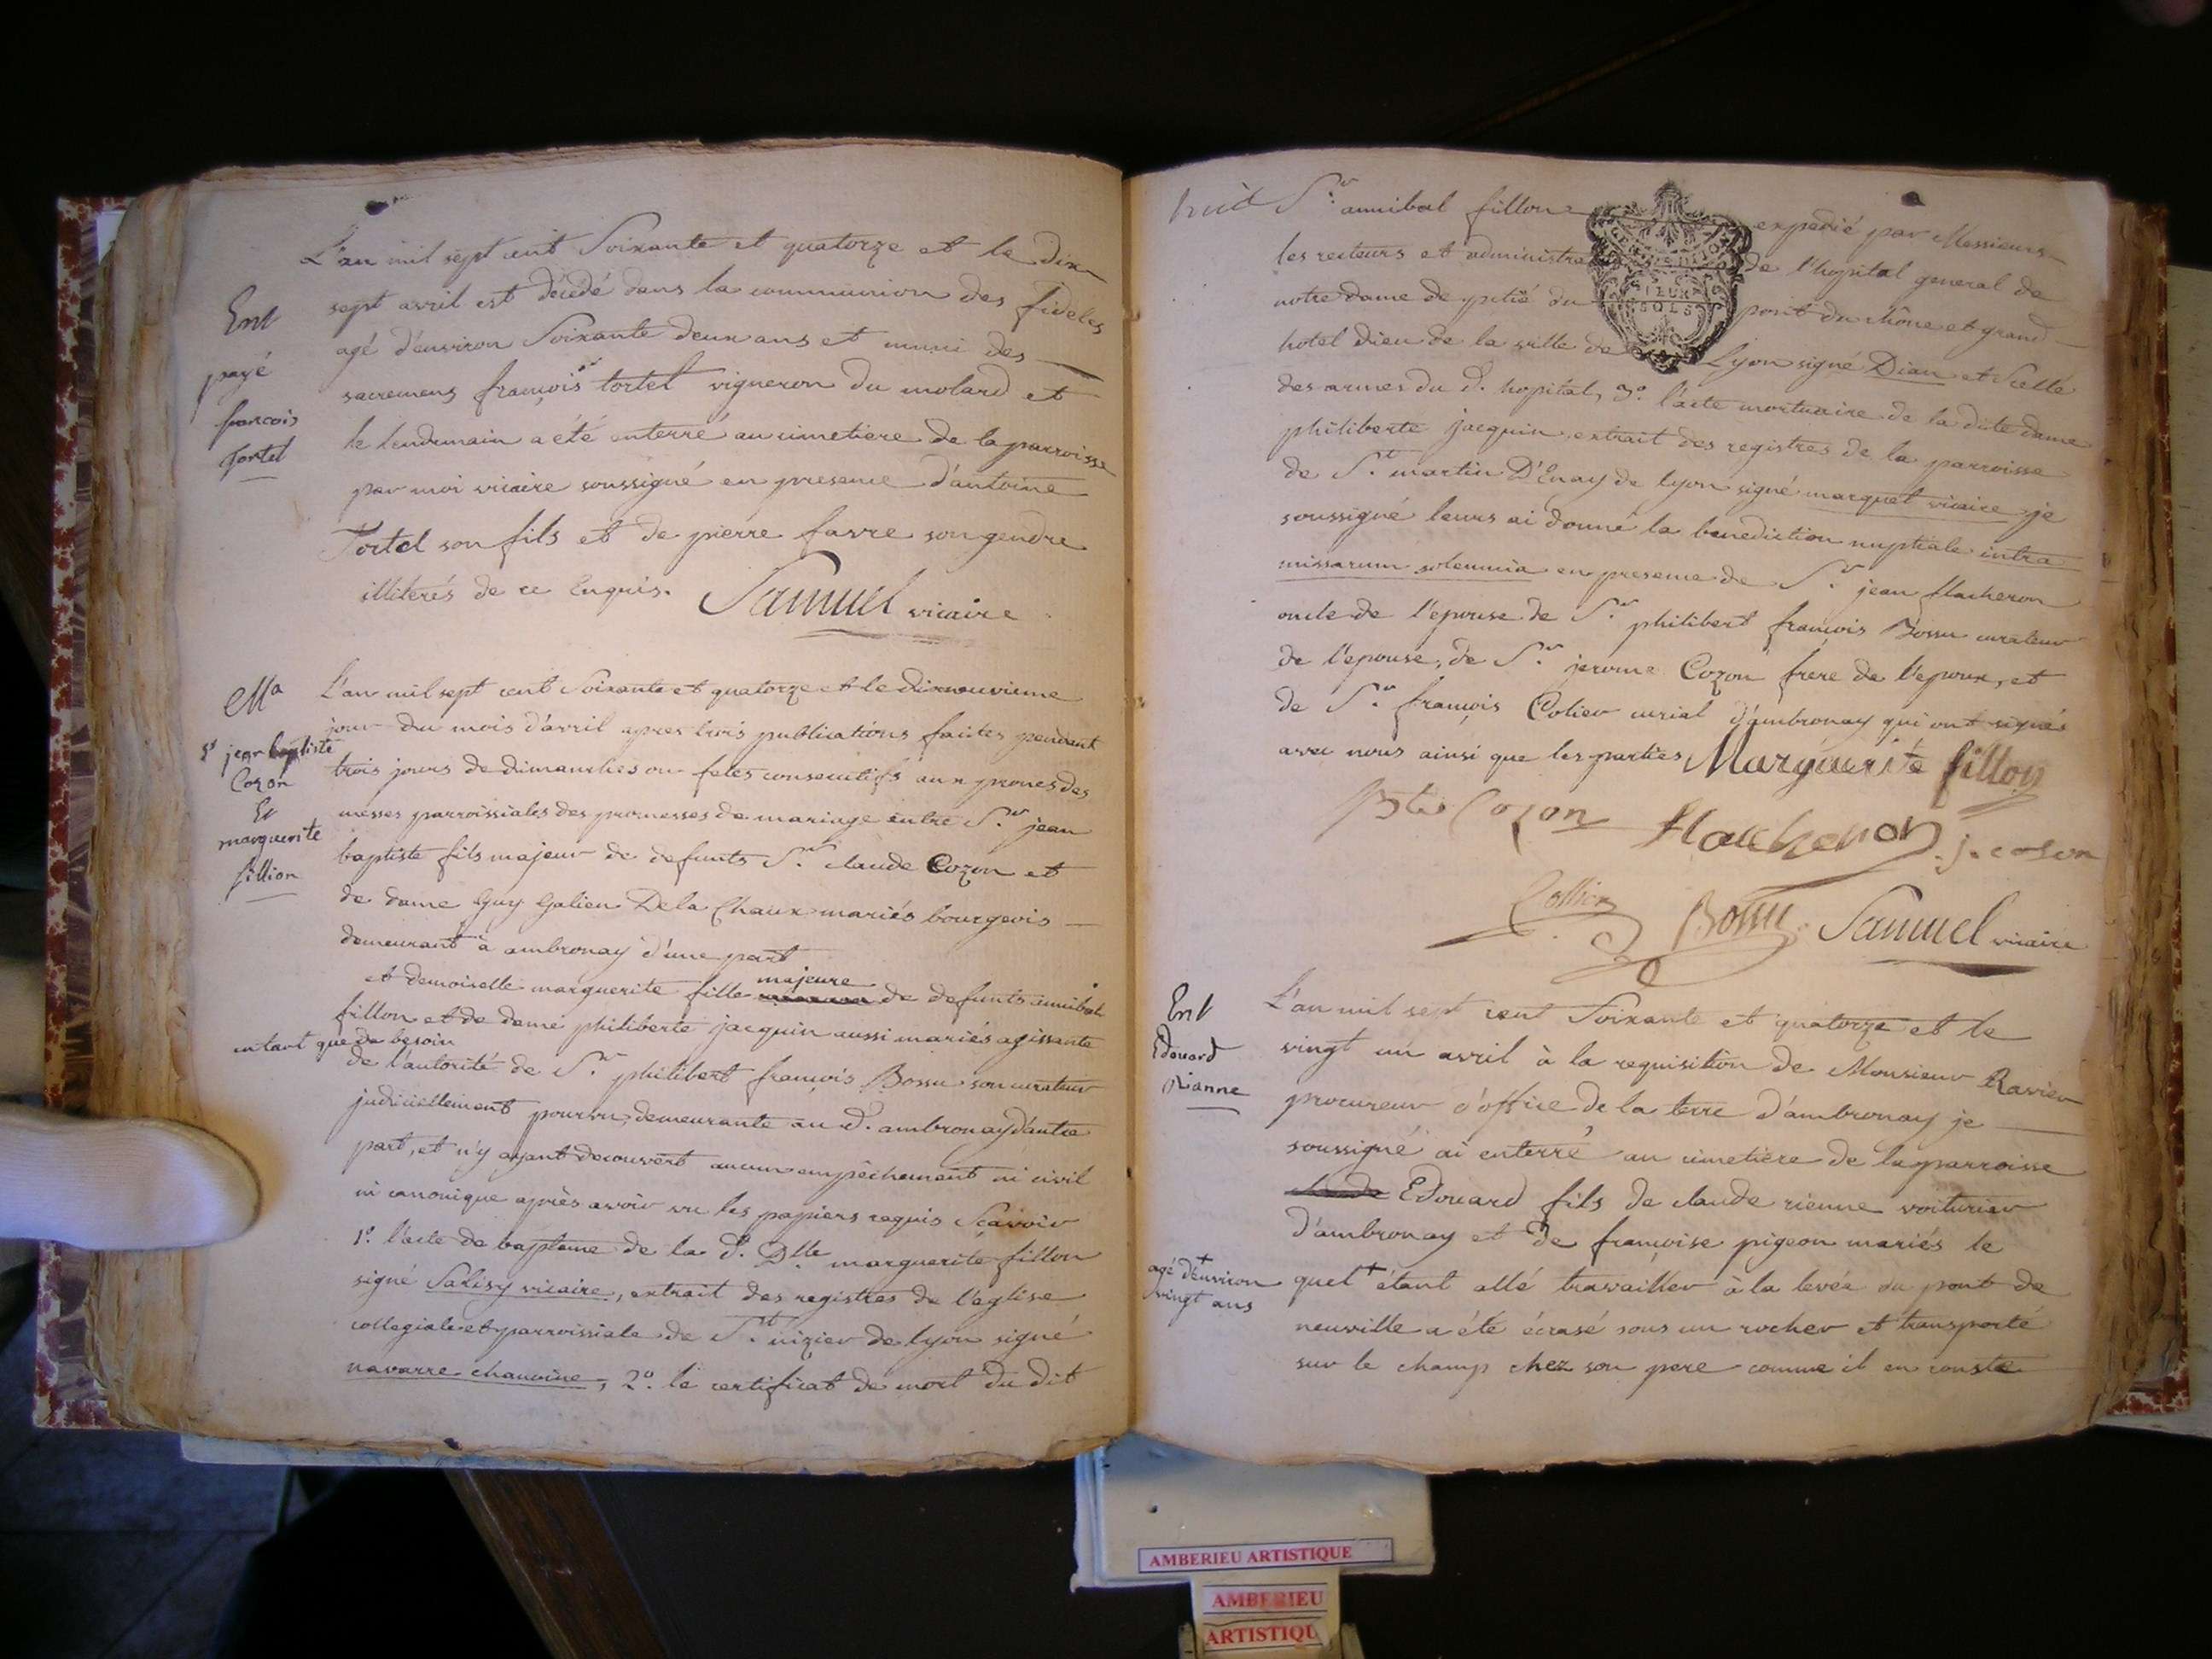 L'an mil sept cent Soixante et quatorze et le dix
sept avril est décédé dans la communion des fideles
agé d'environ Soixante deux ans et muni des
sacremens françois tortel vigneron du molard et
le lendemain a été enterré au cimetiere de la parroisse
par moi vicaire soussigné en presence d'antoine
Tortel son fils et de pierre favre son gendre
illiterés de ce Enquis. Samuel vicaire
Ent
payé
francois
Tortel
L'an mil sept cent Soixante et quatorze et le dixneuvieme
jour du mois d'avril apres trois publications faites pendant
trois jours de dimanches ou fetes consecutifs aux prones des
messes parroissiales des promesses de mariage entre Sr jean
baptiste fils majeur de defunts Sr claude Cozon et
de dame Guy Galien De la Chaux mariés bourgeois
demeurant à ambronay d'une part
et demoiselle marguerite fille majeure de defunts annibal
fillon et de dame philiberte jacquin aussi mariés agissante
en tant que de besoin
de l'autorité de Sr philibert françois Bossu son curateur
judiciellement pourvu, demeurante au d. ambronay d'autre
part, et n'y ayant decouvert aucun empêchement ni civil
ni canonique après avoir vu les papiers requis Scavoir
1º. l'acte de bapteme de la d. Dlle marguerite fillon
signé Salisy vicaire, extrait des registres de l'eglise
collegiale et parroissiale de St. nizier de lyon signé
navarre chanoine, 2º. le certificat de mort du dit
Ma
Sr jean baptiste
Cozon
Et
marguerite
fillion
huit Sr. annibal fillon expedié par Messieurs
les recteurs et administra de l'hopital general de
notre dame de pitié du pont du rhône et grand
hotel dieu de la ville de Lyon signé Dian et Scellé
des armes du d. hopital, 3º. l'acte mortuaire de la dite dame
philiberte jacquin extrait des registres de la parroisse
de St. martin D'Enay de lyon signé marquet vicaire je
soussigné leurs ai donné la benediction nuptiale intra
missarum solemnia en presence de Sr. jean flacheron
oncle de l'epouse de Sr. philibert françois Bossu curateur
de l'epouse, de Sr. jerome Cozon frere de l'epoux, et
de Sr. françois Colier curial d'ambronay qui ont signés
avec nous ainsi que les parties Marguerite fillon
Bte Cozon flacheron j. coson
Collier Bossu Samuel vicaire
Ent
Edouard
Rianne
L'an mil sept cent Soixante et quatorze et le
vingt un avril à la requisition de Monsieur Ravier
procureur d'office de la terre d'ambronay je
soussigné ai enterré au cimetière de la parroisse
Edouard fils de claude rienne voiturier
d'ambronay et de françoise pigeon mariés le
quel + étant allé travailler à la levée du pont de
+ agé d'environ
vingt ans
neuville a été écrasé sous un rocher et transporté
sur le champ chez son pere comme il en conste
AMBERIEU ARTISTIQUE
AMBERIEU
ARTISTIQU